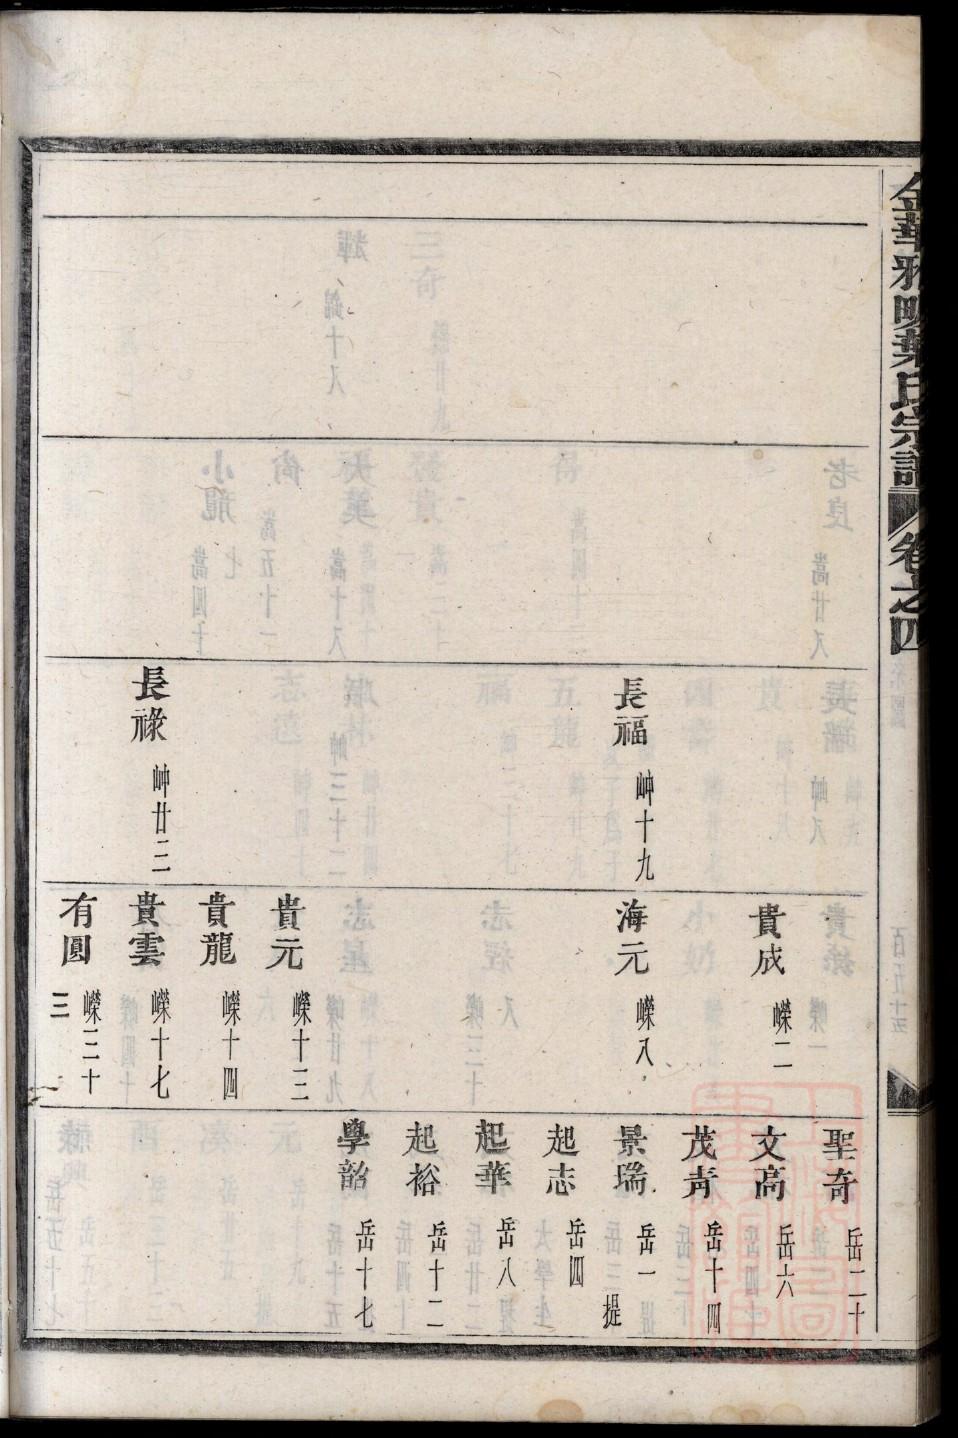 金華雅畈葉氏宗譜 卷之四
長福 㟋十九
長祿 㟋廿二
貴成 嶸二
海元 嶸八
貴元 嶸十三
貴龍 嶸十四
貴雲 嶸十七
有圓 嶸三十三
聖奇 岳二十
文高 岳六
茂青 岳十四
景瑞 岳一 提
起志 岳四
起華 岳八
起裕 岳十二
學韶 岳十七